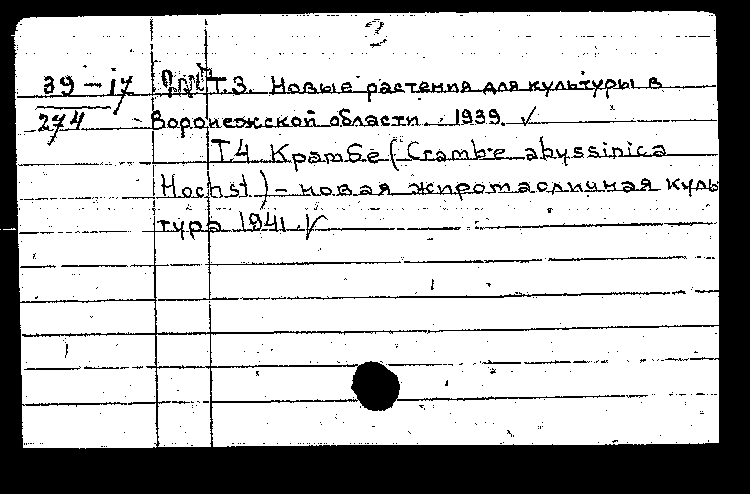 3
39-17 Т.3. Новые растения для культуры в
274 Воронежской области. 1939 ✓
Т4 Крамбе (Crambe abyssinica
Hochst) - новая жиромасличная куль
тура 1941. ✓